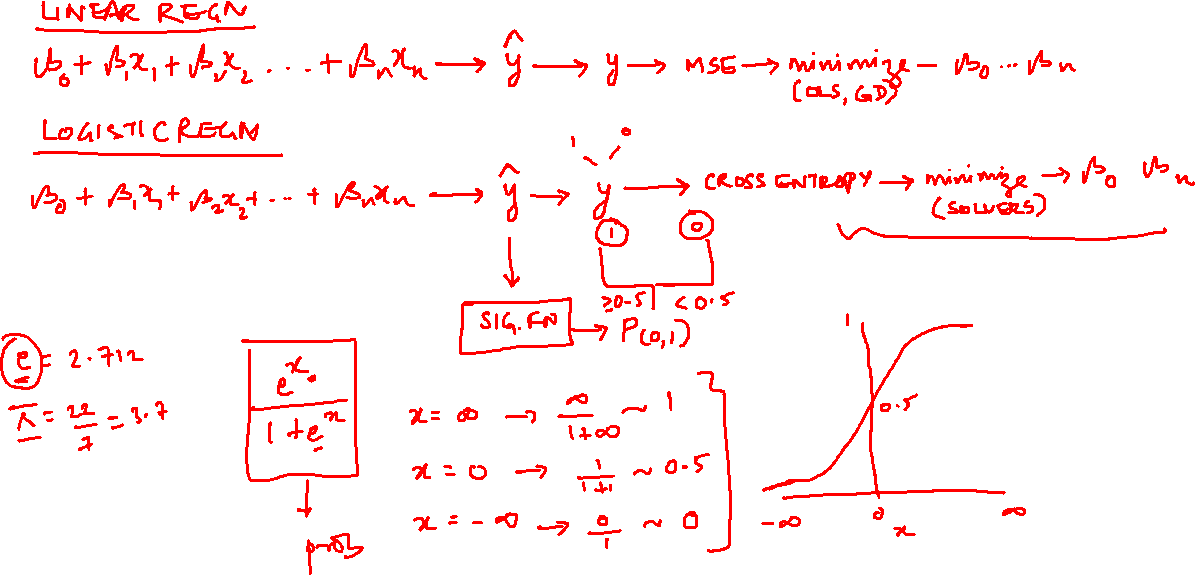 LINEAR REGN
β₀ + β₁x₁ + β₂x₂ ... + βₙxₙ → ŷ → y → MSE → minimize – β₀ ... βₙ
(OLS, GD)
LOGISTIC REGN
1 0
β₀ + β₁x₁ + β₂x₂ + ... + βₙxₙ → ŷ → y → CROSS ENTROPY → minimize → β₀ βₙ
(SOLVERS)
1 0
≥0.5 | <0.5
SIG. FN → P(0,1)
e = 2.712
π = 22/7 = 3.7
e^x / 1 + e^x
prob
x = ∞ → ∞/1+∞ ~ 1
x = 0 → 1/1+1 ~ 0.5
x = -∞ → 0/1 ~ 0
1
0.5
-∞ 0 ∞
x